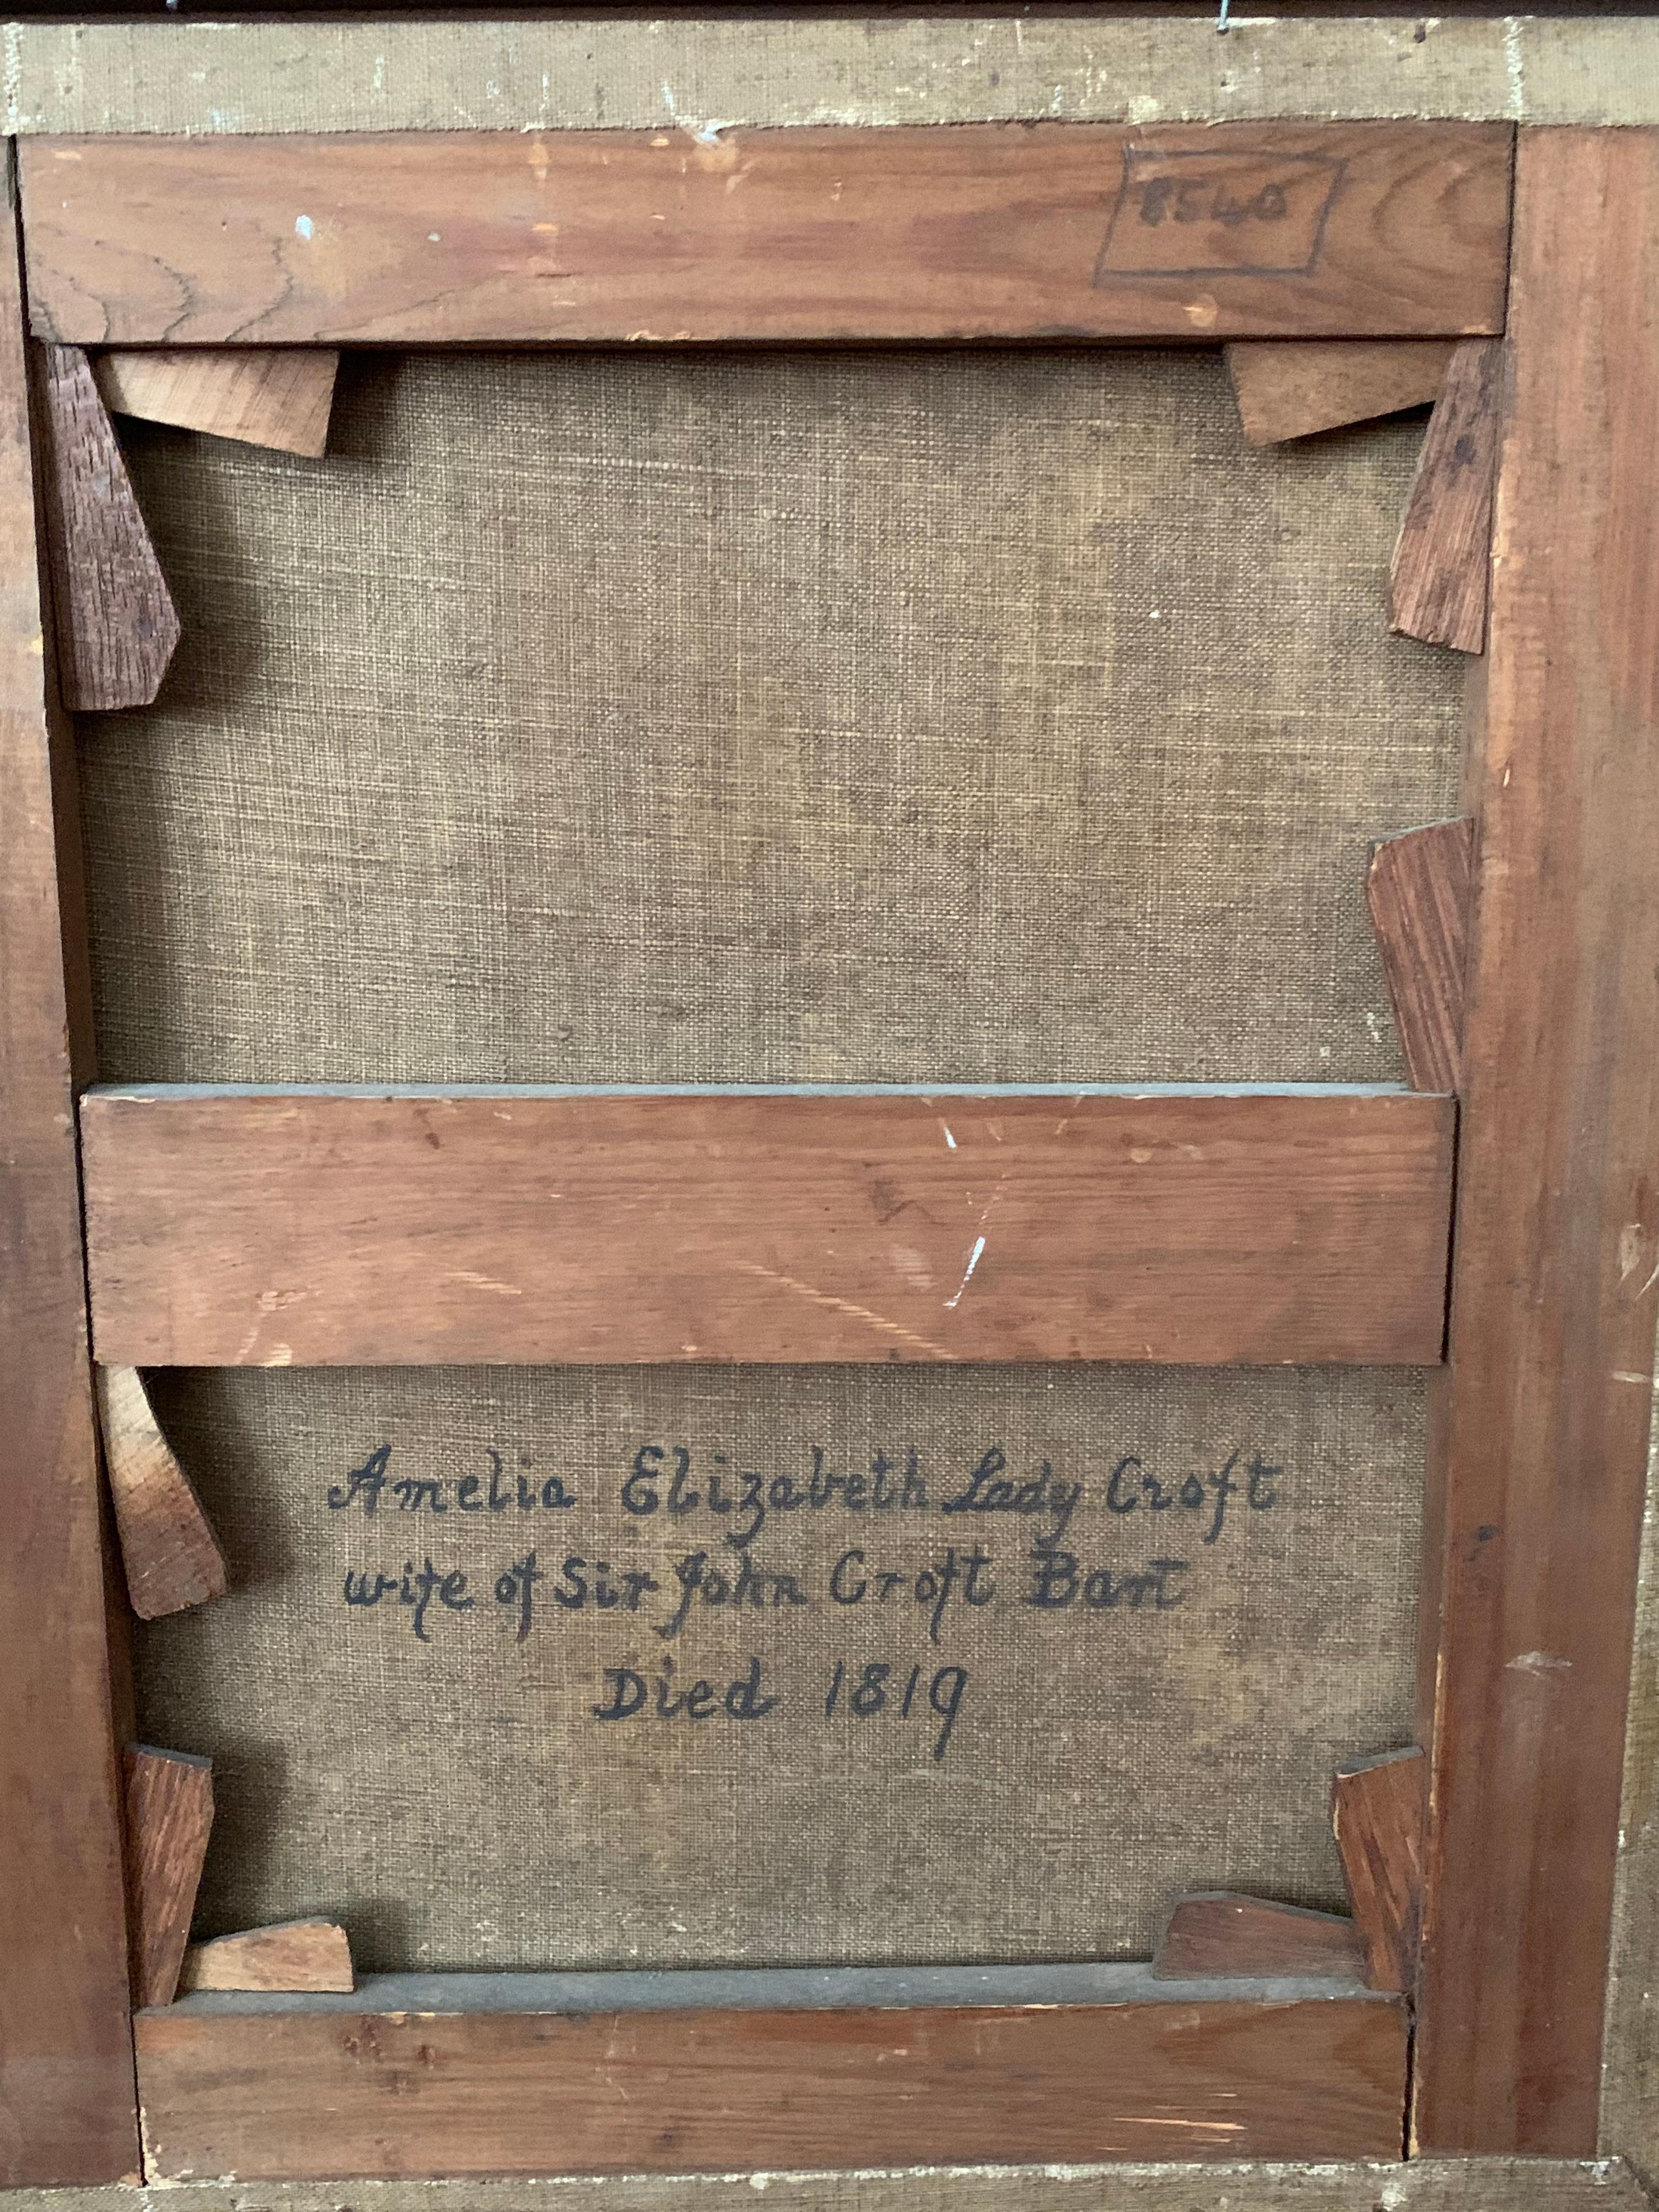 8540
Amelia Elizabeth Lady Croft
wife of Sir John Croft Bart
Died 1819